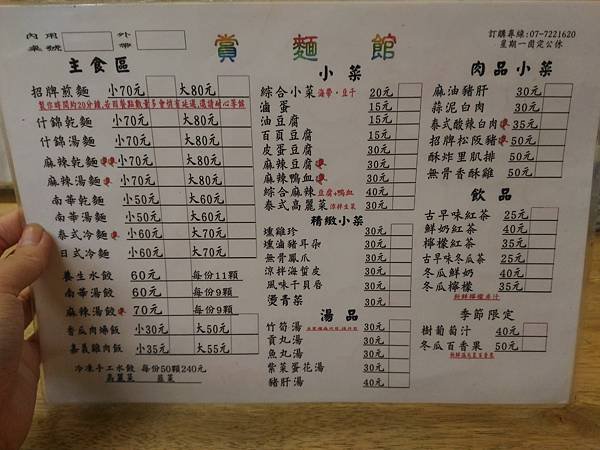 內用 外帶
桌號
賞麵館
訂購專線:07-7221620
星期一固定公休
主食區
招牌煎麵 小70元 大80元
什錦乾麵 小70元 大70元
什錦湯麵 小70元 大70元
麻辣乾麵 小70元 大70元
麻辣湯麵 小70元 大70元
南華乾麵 小50元 大60元
南華湯麵 小60元 大70元
泰式冷麵 小60元 大70元
日式冷麵 小60元 大70元
養生水餃 60元 每份11顆
南華湯餃 60元 每份9顆
麻辣湯餃 70元 每份9顆
香瓜肉燥飯 小30元 大50元
嘉義雞肉飯 小35元 大55元
冷凍手工水餃 每份50顆240元
高麗菜 韭菜
小菜
綜合小菜 海帶・豆干 20元
滷蛋 15元
油豆腐 15元
百頁豆腐 15元
皮蛋豆腐 30元
麻辣豆腐 30元
麻辣鴨血 30元
綜合麻辣 豆腐+鴨血 40元
泰式高麗菜 涼拌生菜 30元
精緻小菜
壚雞珍 30元
壚滷豬耳朵 30元
無骨鳳爪 30元
涼拌海蜇皮 30元
風味干貝唇 30元
燙青菜 30元
湯品
竹筍湯 30元
貢丸湯 30元
魚丸湯 30元
紫菜蛋花湯 30元
豬肝湯 40元
肉品小菜
麻油豬肝 30元
蒜泥白肉 30元
泰式酸辣白肉 35元
招牌松阪豬 50元
酥炸里肌排 50元
無骨香酥雞 50元
飲品
古早味紅茶 25元
鮮奶紅茶 40元
檸檬紅茶 35元
古早味冬瓜茶 25元
冬瓜鮮奶 40元
冬瓜檸檬 35元
新鮮檸檬原汁
季節限定
樹葡萄汁 40元
冬瓜百香果 50元